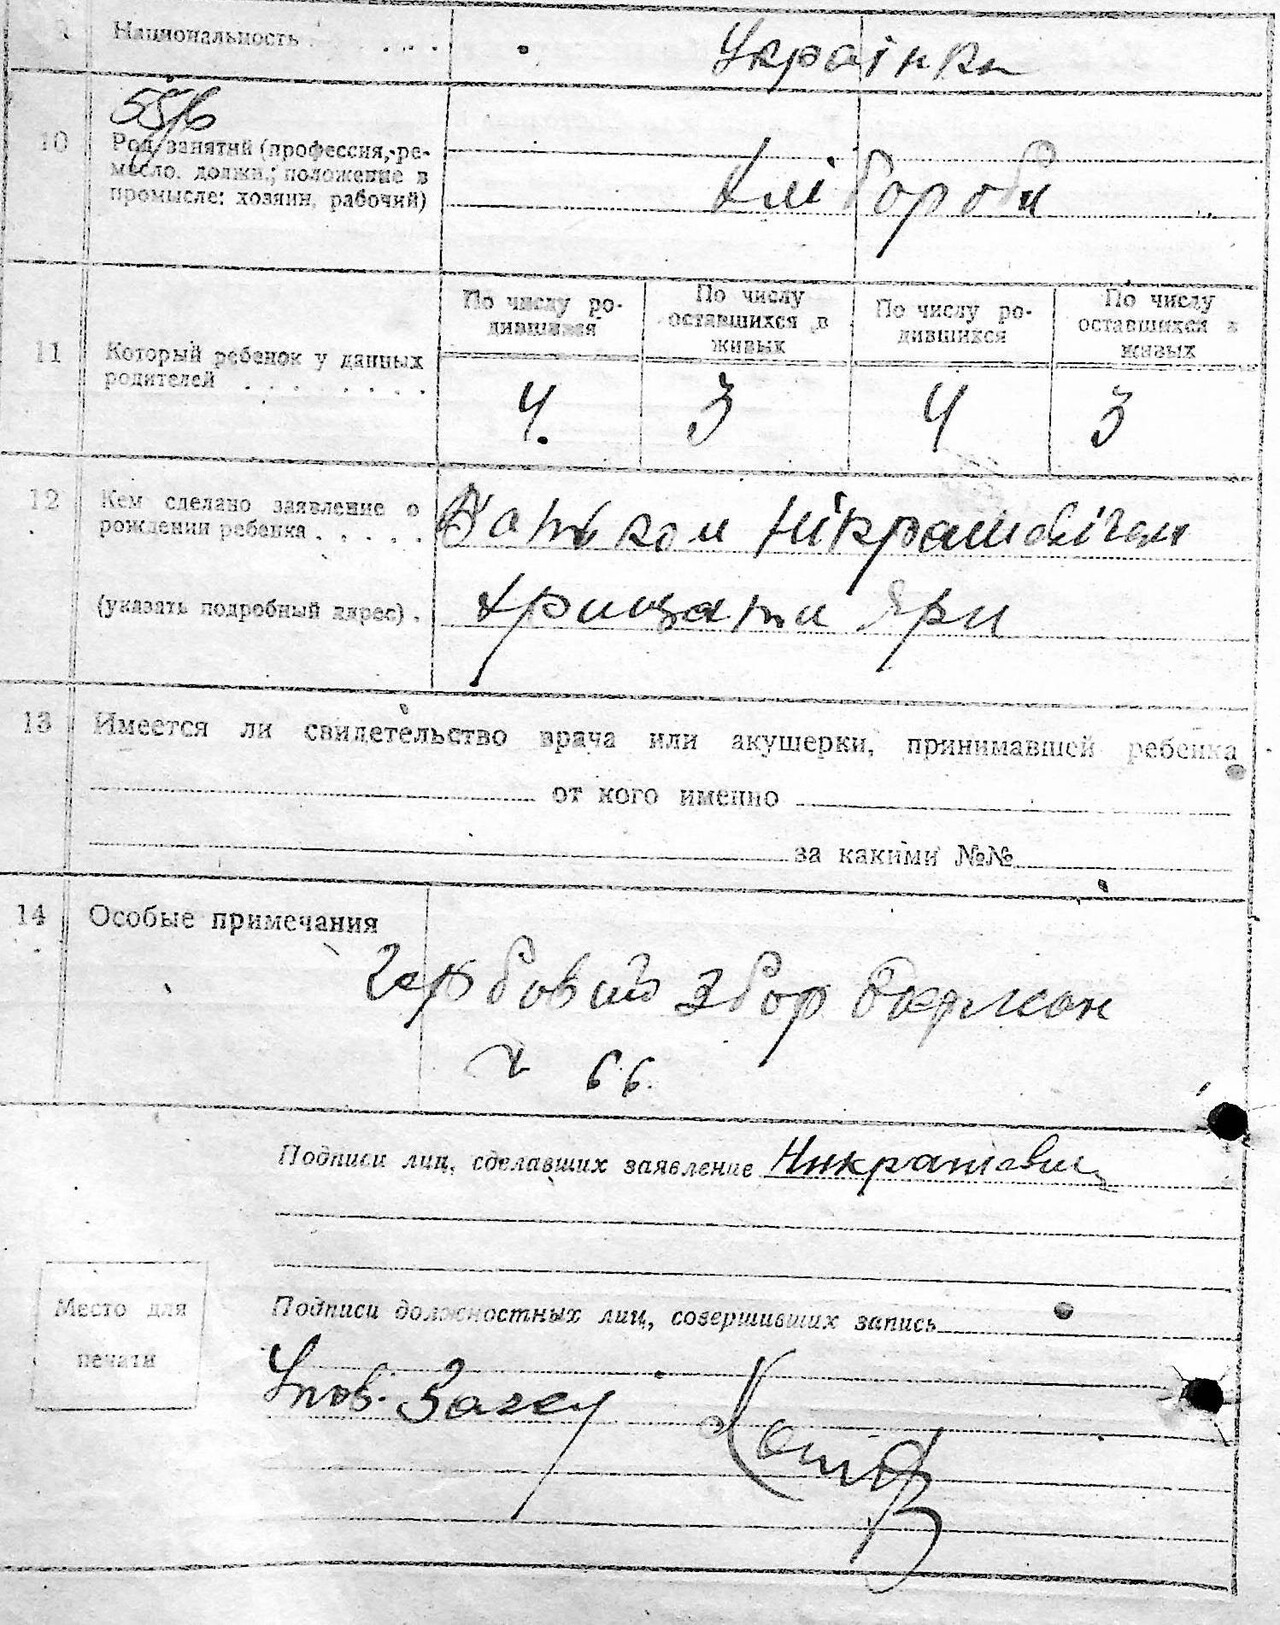 9 Национальность Українки
55/6
10 Род занятий (профессия, ре-
месло, должн.; положение в
промысле: хозяин, рабочий)
Хлібороби
По числу ро-
дившихся
По числу
оставшихся в
живых
По числу ро-
дившихся
По числу
оставшихся в
живых
11 Который ребенок у данных
родителей
4. 3 4 3
12 Кем сделано заявление о
рождении ребенка
Батьком Нікрашевічем
(указать подробный адрес).
Хрищати Яри
13 Имеется ли свидетельство врача или акушерки, принимавшей ребенка
от кого именно
за какими №№
14 Особые примечания
Гербовий збор одержан
66.
Подписи лиц, сделавших заявление Никрашевич
Подписи должностных лиц, совершивших запись
Место для
печати
Упов. Загсу